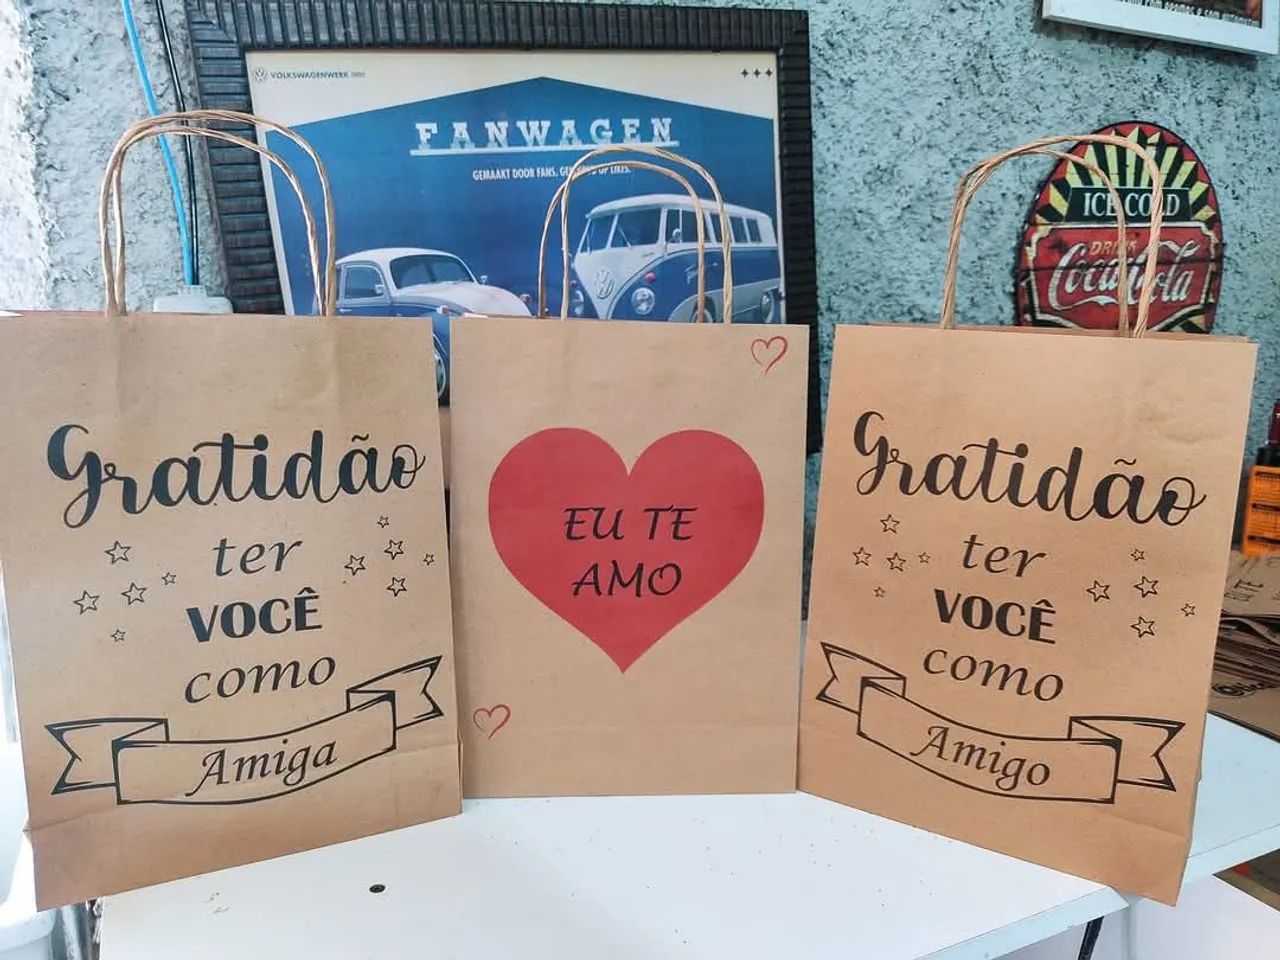 VOLKSWAGENWERK
FANWAGEN
GEMAAKT DOOR FANS.
LIKES.
ICE COLD
DRINK
Coca-Cola
Gratidão
ter
VOCÊ
como
Amiga
EU TE
AMO
Gratidão
ter
VOCÊ
como
Amigo